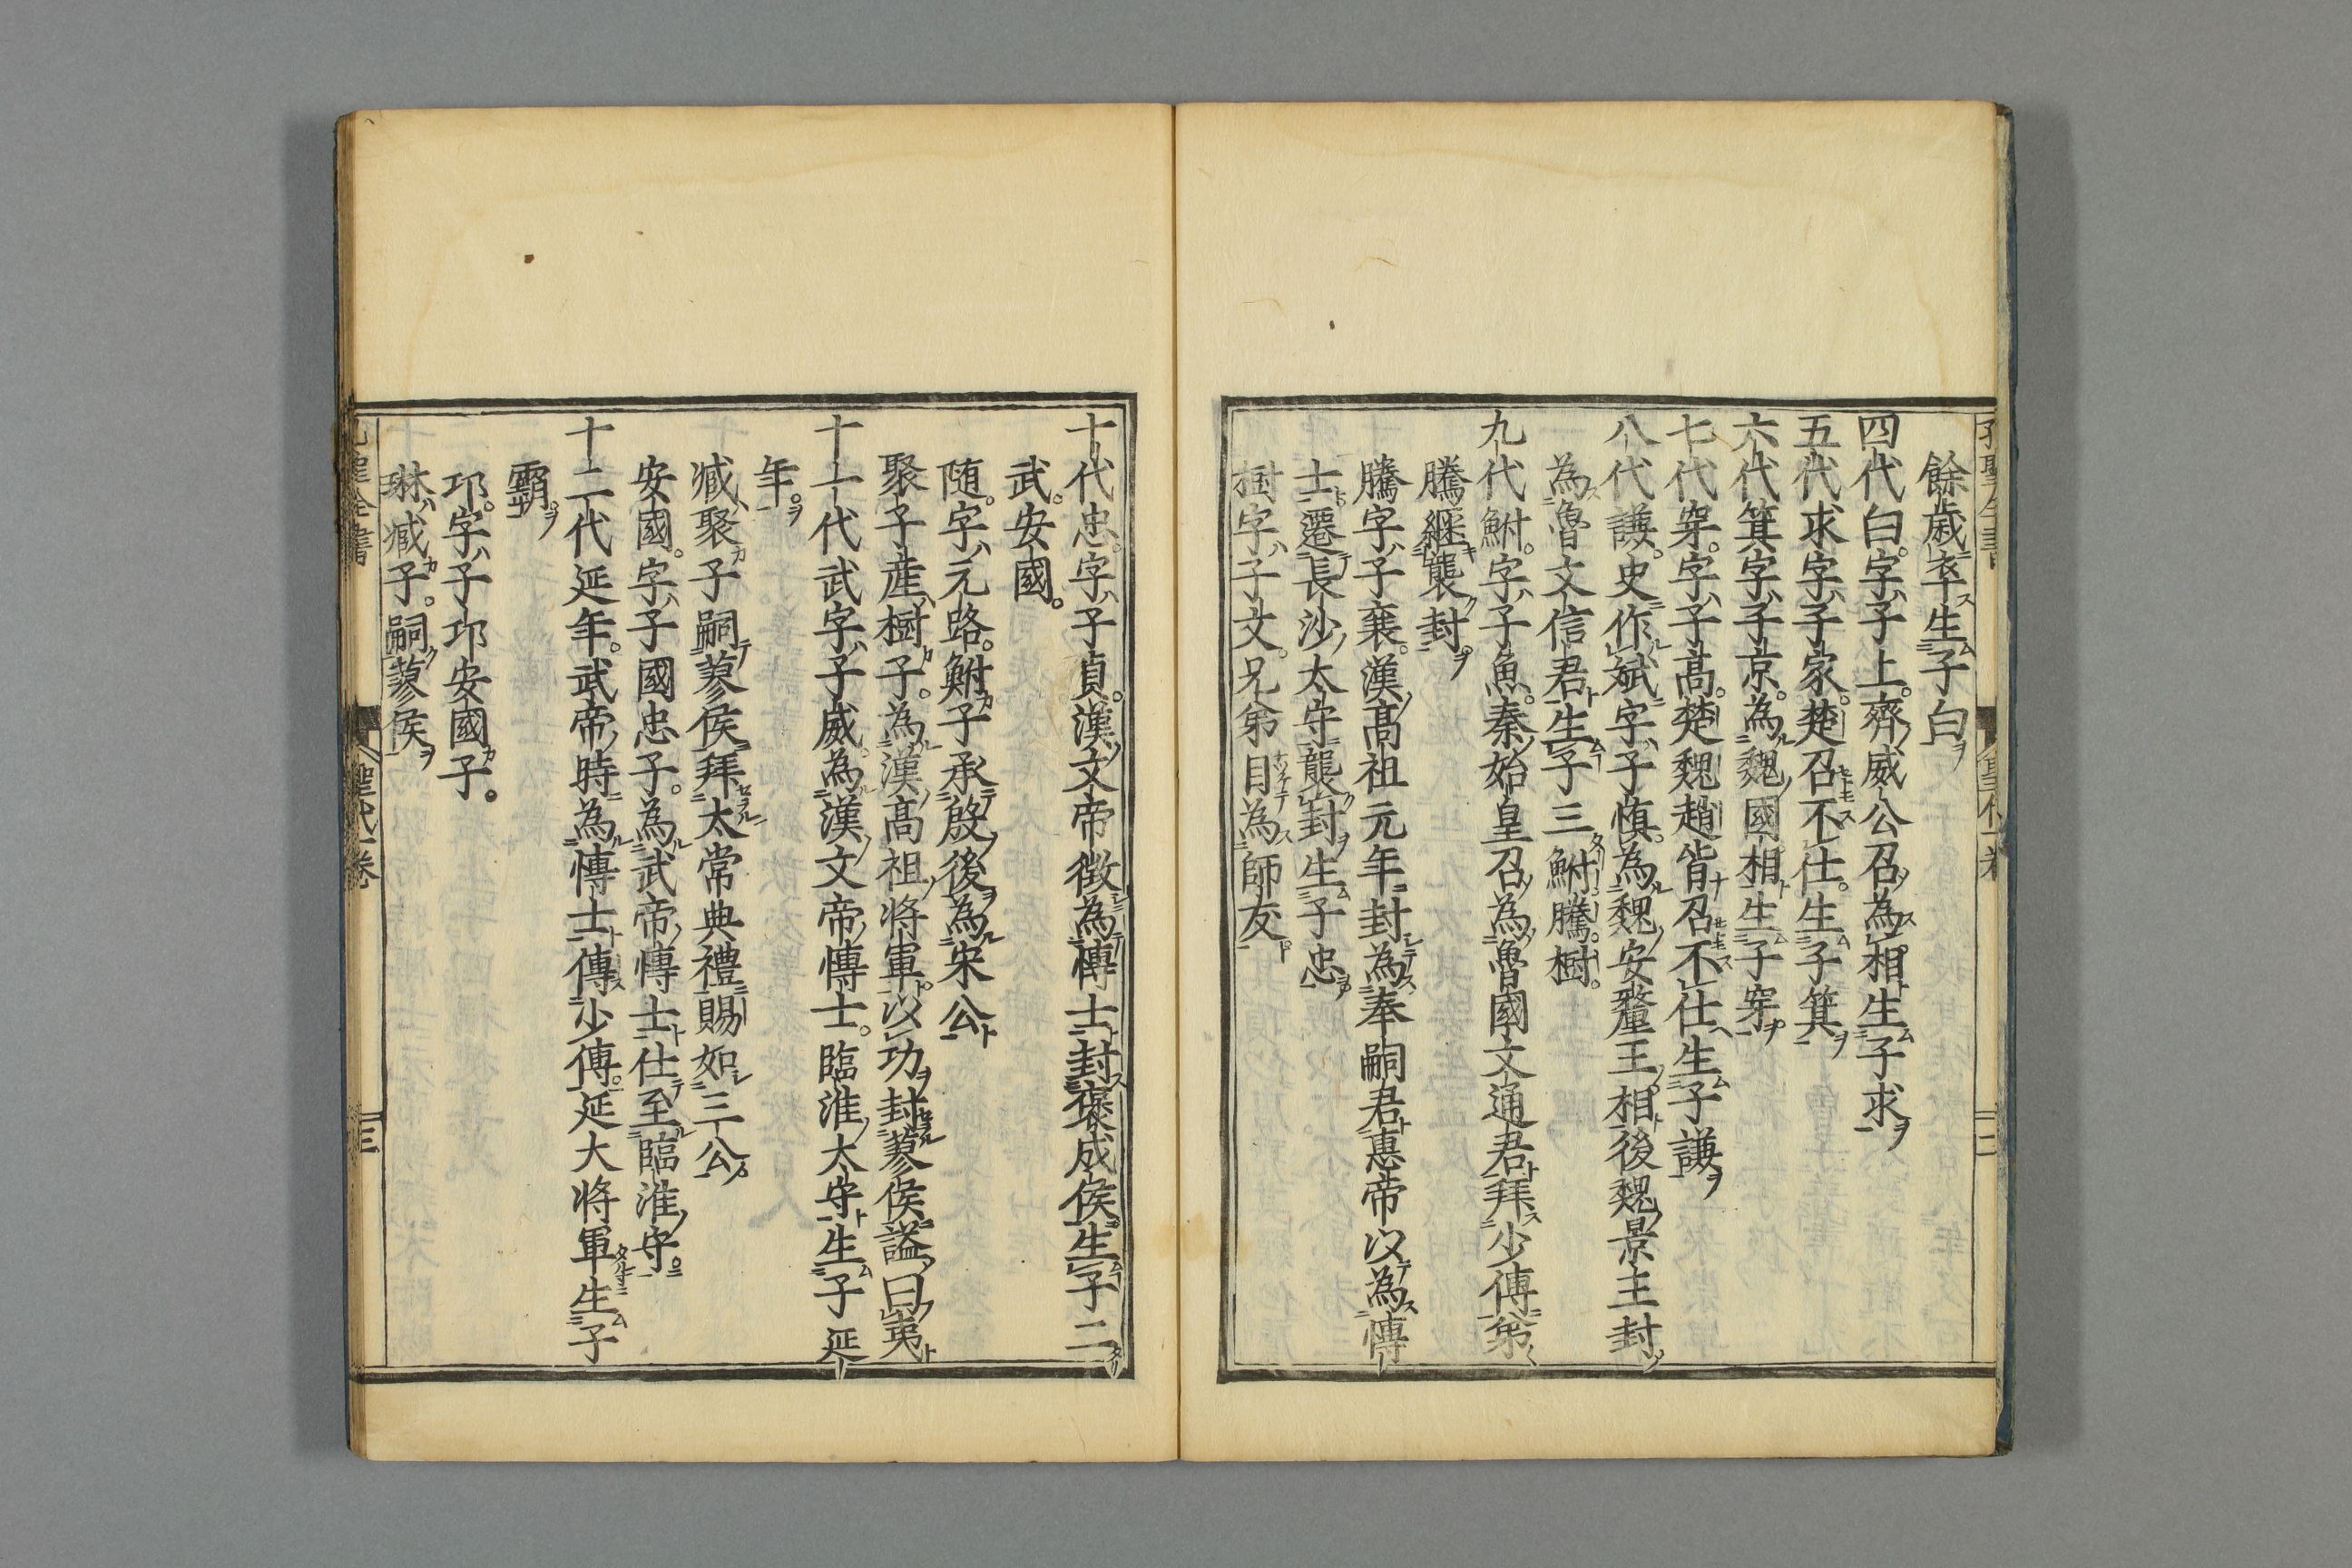 餘歳卒生子白
四代白字子上齊威公召為相生子求
五代求字子家楚召不仕生子箕
六代箕字子京為魏國相生子穿
七代穿字子高楚魏趙皆召不仕生子謙
八代謙史作斌字子慎為魏安釐王相後魏景主封
為魯文信君生子三鮒騰樹
九代鮒字子魚秦始皇召為魯國文通君拜少傅弟
騰繼襲封
騰字子襄漢高祖元年封為奉嗣君惠帝以為博
士遷長沙太守襲封生子忠
樹字子文兄弟目為師友
十代忠字子貞漢文帝徵為博士封褒成侯生子二
武安國
随字元路鮒子承殷後為宋公
聚子産樹子為漢高祖將軍以功封蓼侯謚曰夷
十一代武字子威為漢文帝博士臨淮太守生子延
年
臧聚子嗣蓼侯拜太常典禮賜如三公
安國字子國忠子為武帝博士仕至臨淮守
十二代延年武帝時為博士傅少傅延大將軍生子
霸
卭字子卭安國子
琳臧子嗣蓼侯
聖代一卷
三